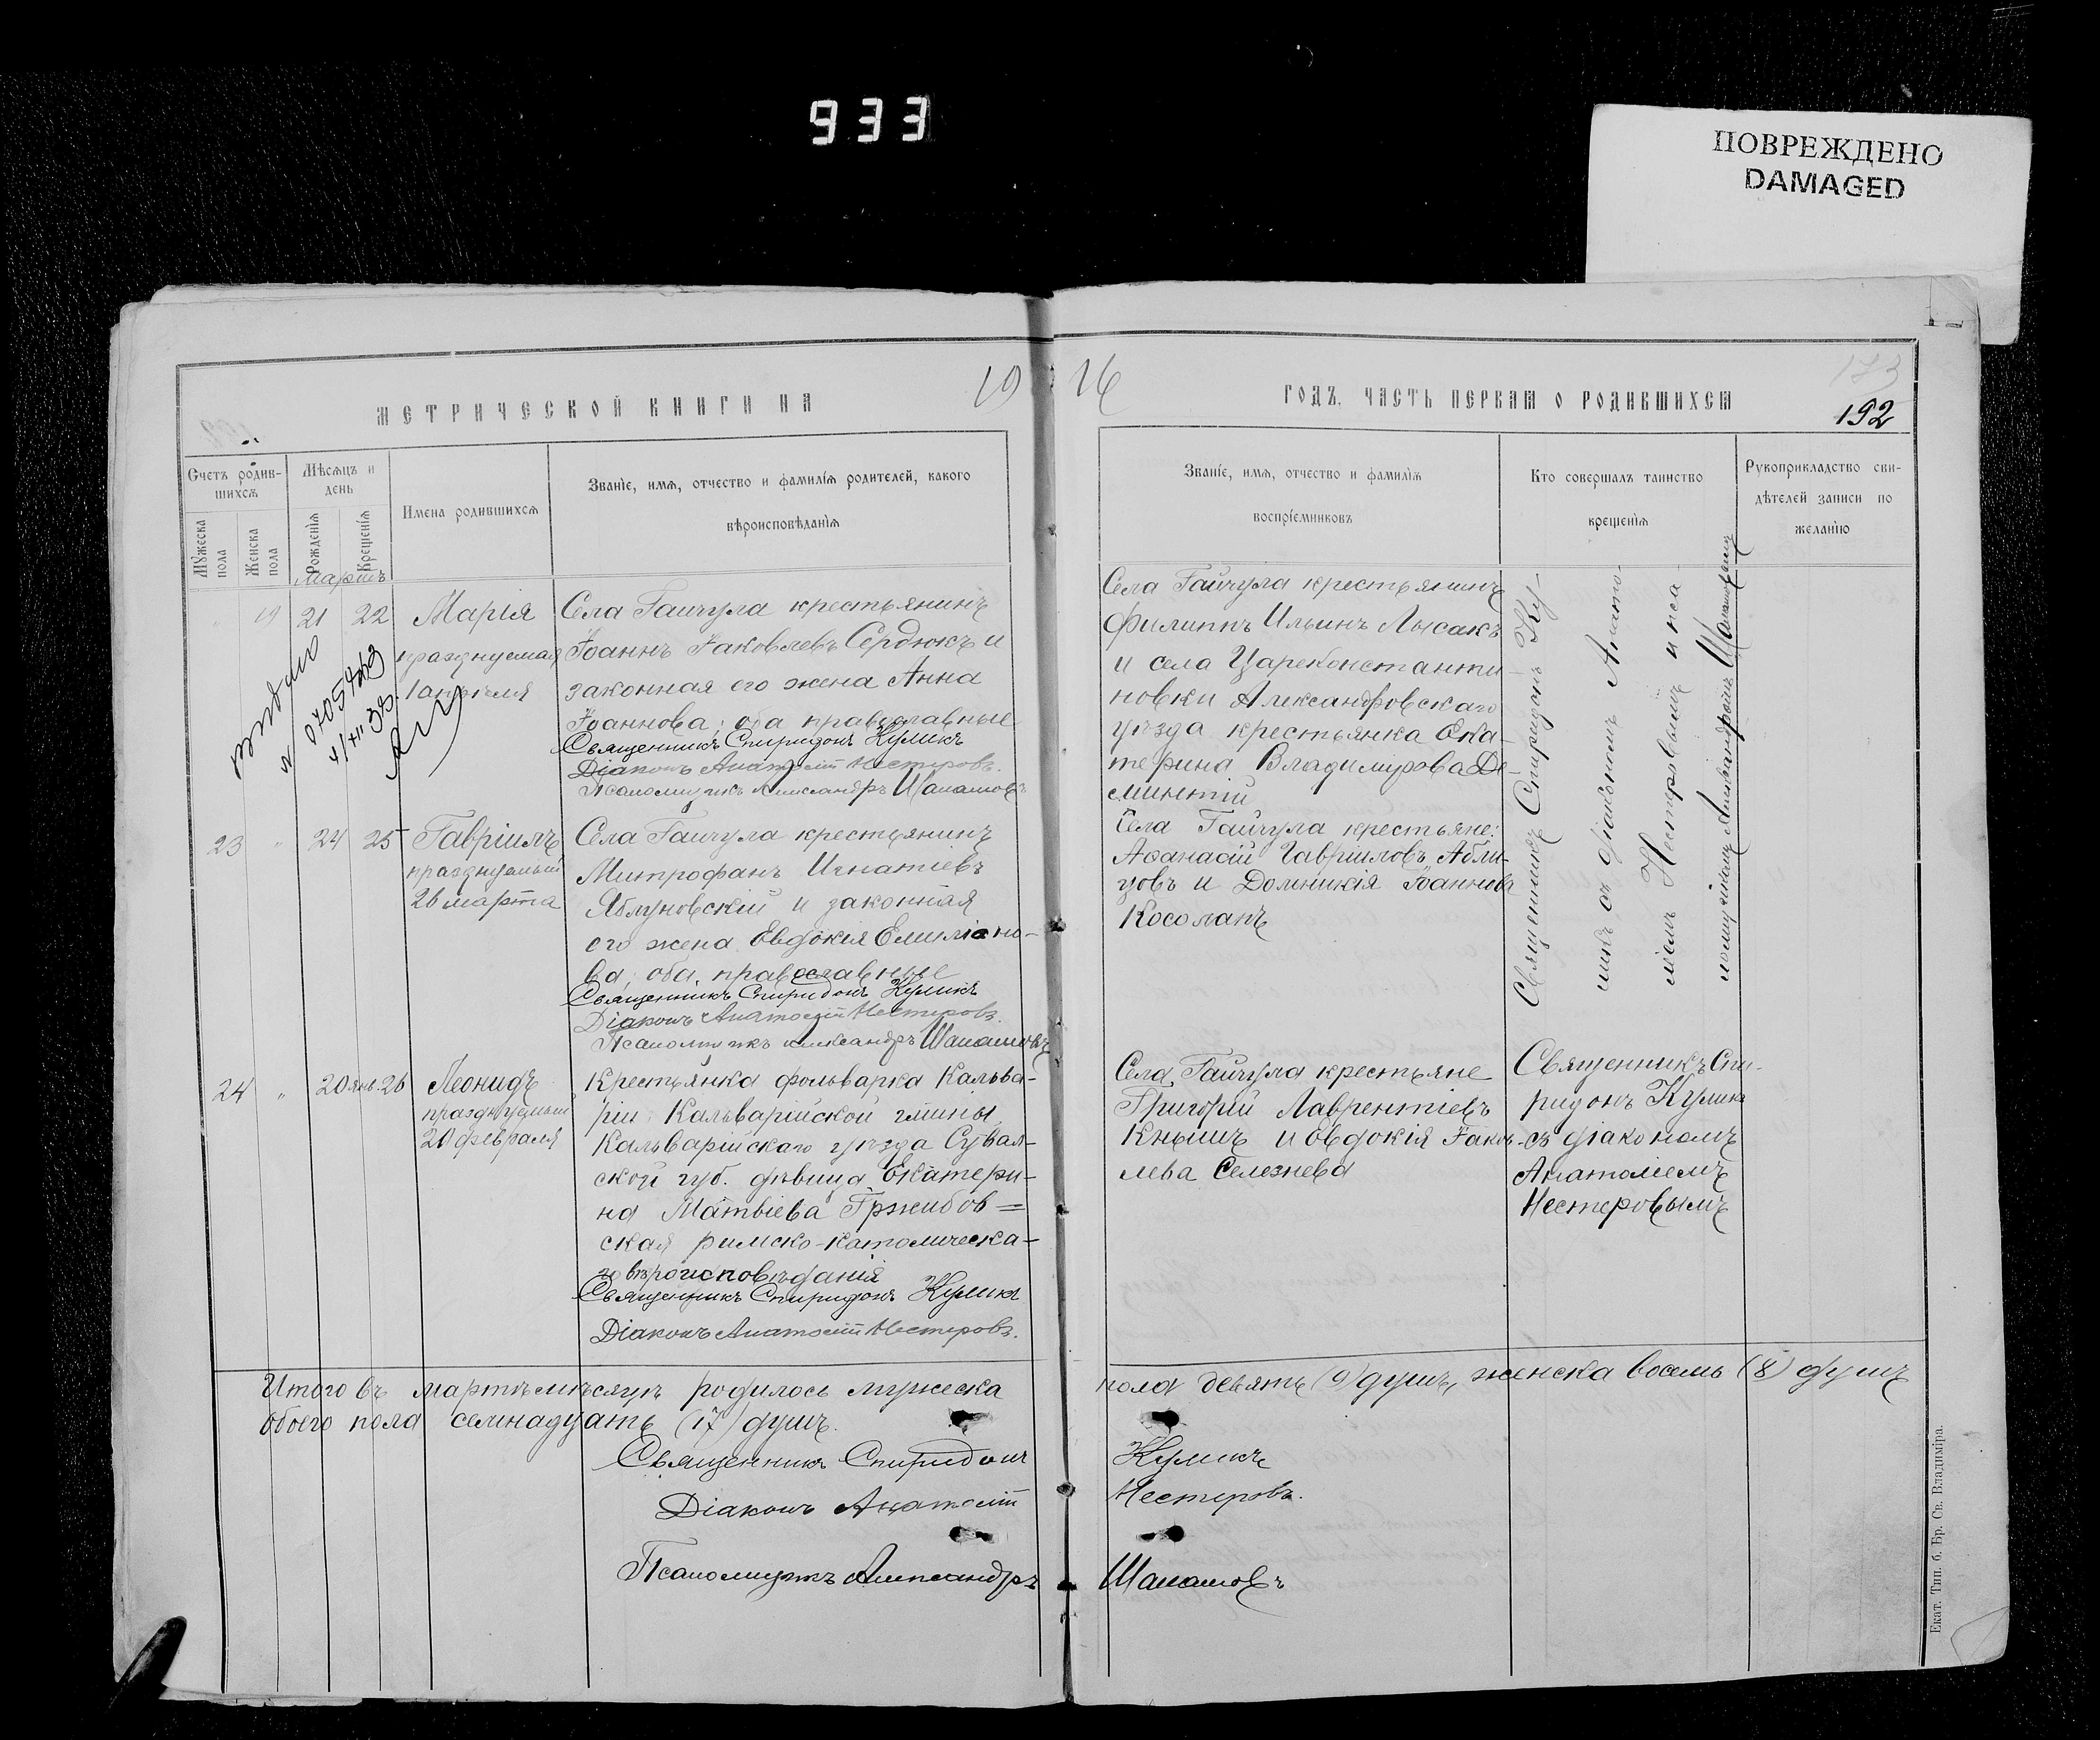 933
ПОВРЕЖДЕНО
DAMAGED
МЕТРИЧЕСКОЙ КНИГИ НА 19
16 ГОДЪ, ЧАСТЬ ПЕРВАЯ О РОДИВШИХСЯ
173
192
Счетъ родив-
шихся
Мужеска пола
Женска пола
Мѣсяцъ и
день
Рожденія
Крещенія
Имена родившихся
Званіе, имя, отчество и фамилія родителей, какого
вѣроисповѣданія
Званіе, имя, отчество и фамилія
воспріемниковъ
Кто совершалъ таинство
крещенія
Рукоприкладство сви-
дѣтелей записи по
желанію
Мартъ
" 19 21 22
Марія
празднуемая
1 апрѣля
Села Гайчула крестьянинъ
Іоаннъ Іаковлевъ Сердюкъ и
законная его жена Анна
Іоаннова; оба православные
Священникъ Спиридонъ Куликъ
Діаконъ Анатолій Нестеровъ.
Псаломщикъ Александръ
Села Гайчула крестьянинъ
Филиппъ Ильинъ Лысакъ
и села Цареконстанти-
новки Александровскаго
уѣзда крестьянка Ека-
терина Владимирова Де-
ментій
Священникъ Спиридонъ Ку-
ликъ съ діакономъ Анато-
ліемъ Нестеровымъ и пса-
ломщикомъ Александромъ
23 " 24 25
Гавріилъ
празднуемый
26 марта
Села Гайчула крестьянинъ
Митрофанъ Игнатіевъ
Яблуновскій и законная
его жена Евдокія Емиліано-
ва; оба православные
Священникъ Спиридонъ Куликъ
Діаконъ Анатолій Нестеровъ.
Псаломщикъ Александръ
Села Гайчула крестьяне:
Афанасій Гавріиловъ Абли-
цовъ и Домникія Іоаннова
Косолапъ
24 " 20 янв. 26
Леонидъ
празднуемый
20 февраля
Крестьянка фольварка Кальва-
ріи Кальварійской гмины,
Кальварійскаго уѣзда Сувал-
ской губ. дѣвица Екатери-
на Матвіева Гржибов=
ская римско-католическа-
го вѣроисповѣданія
Священникъ Спиридонъ Куликъ
Діаконъ Анатолій Нестеровъ.
Села Гайчула крестьяне
Григорій Лаврентіевъ
Кнышъ и Евдокія Іаков-
лева Селезнева
Священникъ Спи-
ридонъ Куликъ
съ діакономъ
Анатоліемъ
Нестеровымъ
Итого въ мартѣ мѣсяцѣ родилось мужеска пола девять (9) душъ, женска восемь (8) душъ
обоего пола семнадцать (17) душъ.
Священникъ Спиридонъ Куликъ
Діаконъ Анатолій Нестеровъ.
Псаломщикъ Александръ
Екат. Тип. б. Бр. Св. Владиміра.